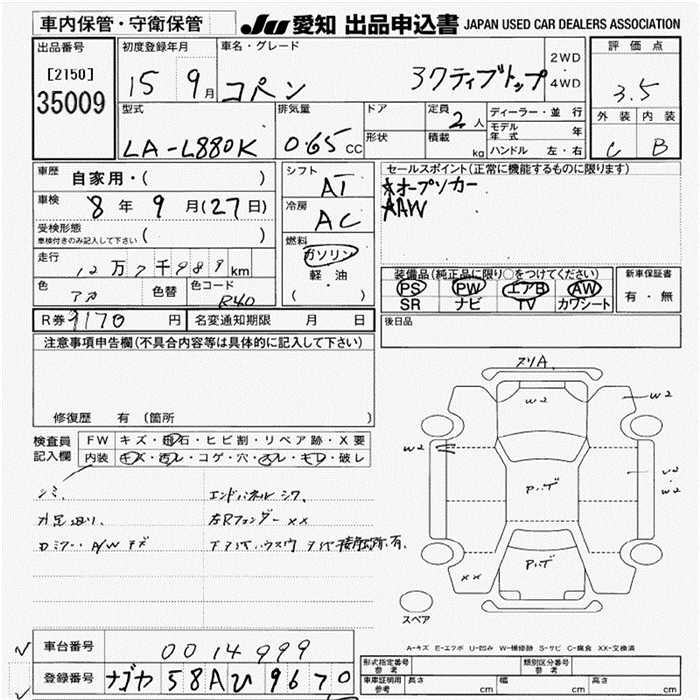 車内保管・守衛保管
JU 愛知 出品申込書 JAPAN USED CAR DEALERS ASSOCIATION
出品番号
[2150]
35009
初度登録年月
15 9月
車名・グレード
コペン アクティブトップ
2WD
・
4WD
評価点
3.5
外装 内装
C B
型式
LA-L880K
排気量
0.65 CC
ドア
形状
定員
2人
積載
kg
ディーラー・並行
モデル年式 年
ハンドル 左・右
車歴
自家用・( )
車検
8年 9月(27日)
受検形態
車検付きのみ記入して下さい ( )
走行
12万7千989km
色
アカ
色替
色コード
R40
シフト
AT
冷房
AC
燃料
ガソリン
軽・油
( )
セールスポイント(正常に機能するものに限ります)
★オープンカー
★AW
装備品(純正品に限り○をつけてください)
PS PW エアB AW
SR ナビ TV カワシート
新車保証書
有・無
R券 9170円
名変通知期限 月 日
後日品
注意事項申告欄(不具合内容等は具体的に記入して下さい)
修復歴 有 (箇所
検査員
記入欄
FW キズ・飛石・ヒビ割・リペア跡・X要
内装 キズ・汚レ・コゲ・穴・スレ・キレ・破レ
シミ、
エンドパネルシワ、
左Rフェンダーxx
ドアミラー・A/Wキズ
スリA
W2
W2
W2
W2
W2
P.ハゲ
P.ハゲ
xx
スペア
A-キズ E-エクボ U-凹み W-補修跡 S-サビ C-腐食 XX-交換済
車台番号
0014999
登録番号
ナゴヤ 58A ひ 9670
形式指定番号
参考
類別区分番号
参考
車庫証明用
参考
長さ cm
幅 cm
高さ cm